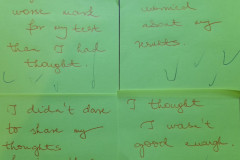 worse mark
for my test
than I had
thought
worried
about my
results
I didn't dare
to share my
thoughts
I thought
I wasn't
good enough.